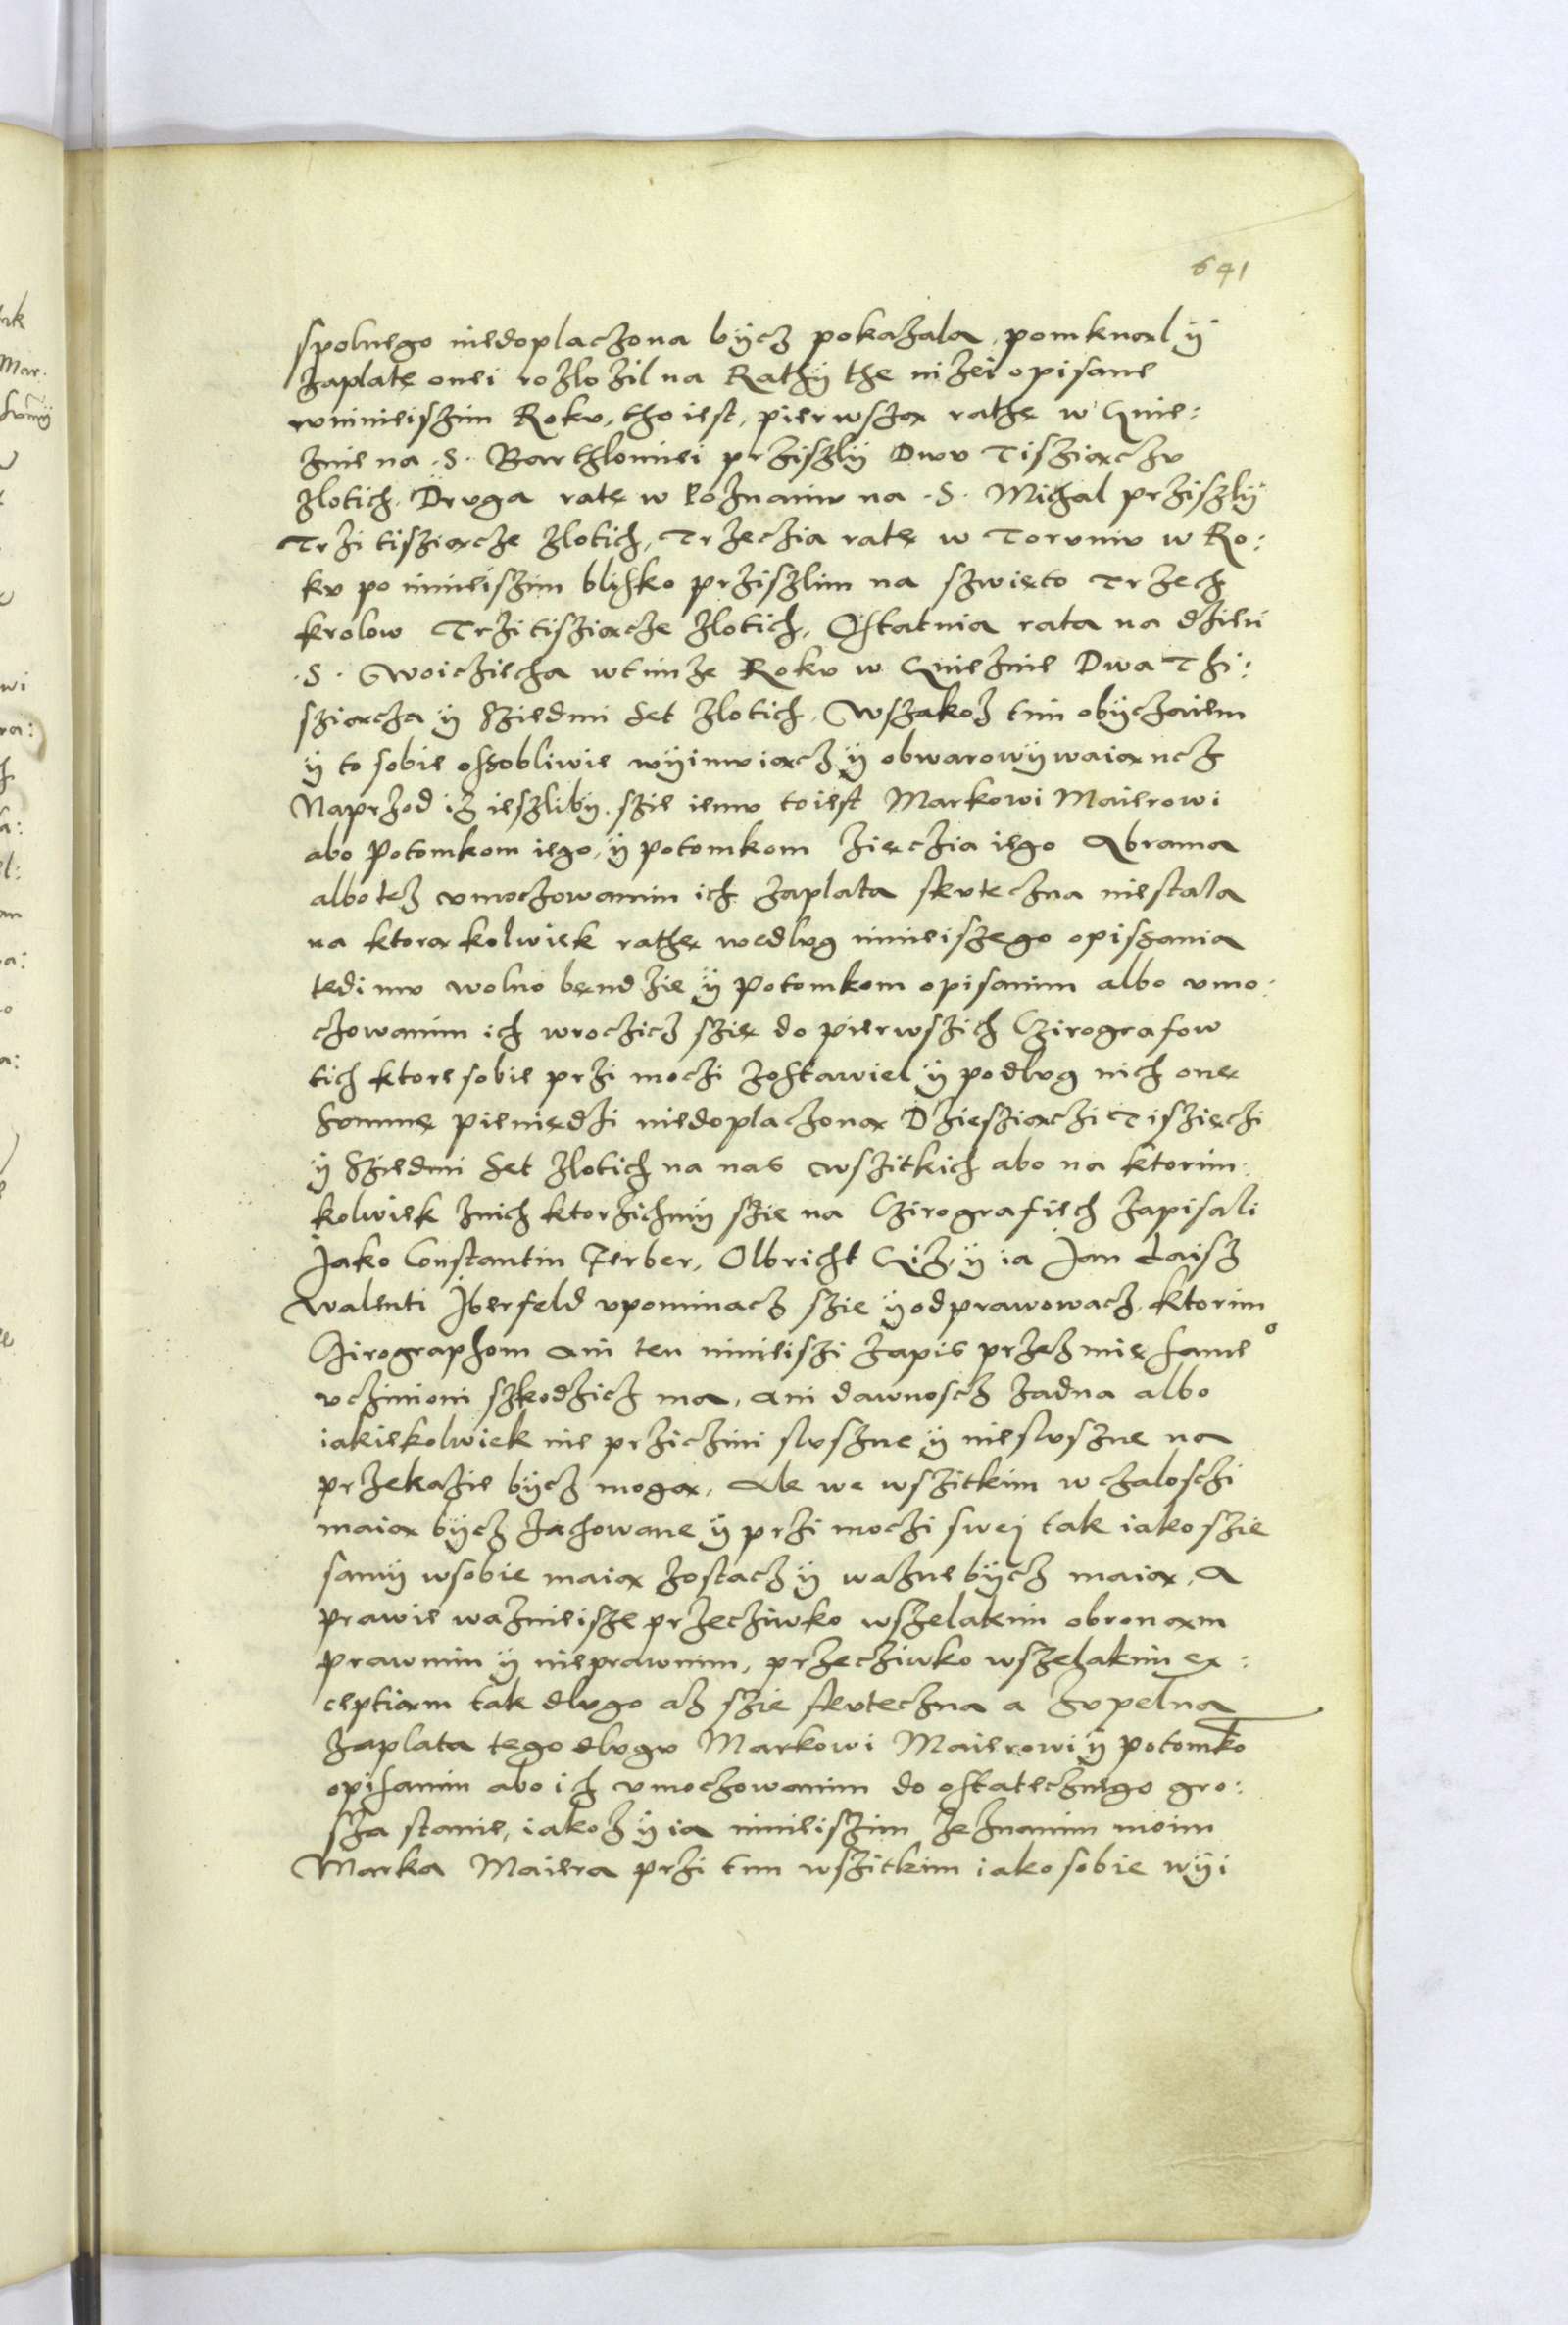 641
spolnego niedoplaczona býcz pokazala, pomknal ÿ
zaplatę onei rozlozil na Rathÿ the nizei opisane
wninieiszim Roku, tho iest, pierwszą rathę w Gnie:
znie na .S. Barthlomiei prziszlÿ Dwu Tisziączu
zlotich. Druga ratę w Poznaniu na .S. Michal prziszlÿ
Trzi tisziącze zlotich, Trzeczia ratę w Toruniu w Ro:
ku po ninieiszim blisko prziszlim na szwięto Trzech
krolow Trzi tisziącze zlotich, Ostatnia rata na dzień
.S. Woicziecha wtimze Roku w Gnieznie Dwa Thi:
sziącza ÿ Sziedmi Set zlotich, Wszakoz tim obÿczaiem
ÿ to sobie ossobliwie wÿimuiącz ÿ obwarowÿwaiąncz
Naprzod iz ieszlibÿ szie iemu toiest Markowi Maierowi
abo Potomkom iego, ÿ potomkom zięczia iego Abrama
albo tez umoczowanim ich zaplata skuteczna niestala
na ktorąkolwiek rathę wedlug ninieiszego opissania
tedi mu wolno bendzie ÿ Potomkom opisanim albo umo:
czowanim ich wroczicz szię do pierwszich Czirografow
tich ktore sobie przi moczi zostawiel ÿ podlug nich onę
Summę pieniędzi niedoplaczoną Dziesziączi Tiszięczi
ÿ Sziedmi Set zlotich na nas wszitkich abo na ktorim:
kolwiek znich ktorzichmÿ szie na Czirografiech zapisali
Jako Constantin Ferber, Olbricht Giz, ÿ ia Jan Laisz
Walenti Iberfeld upominacz szie ÿ odprawowacz, ktorim
Czirographom ani ten ninieiszi zapis przez mię same°
uczinioni szkodzicz ma, ani dawnoscz zadna albo
iakiekolwiek nie prziczini sluszne ÿ niesluszne na
przekazie bÿcz mogą, Ale we wszitkim w czaloschi
maią bÿcz zachowane ÿ przi moczi swej tak iako szie
samÿ wsobie maią zostacz ÿ wazne bÿcz maią, A
prawie waznieisze przecziwko wszelakim obronąm
prawnim ÿ nieprawnim, przecziwko wszelakim ex:
ceptiąm tak dlugo az szie skuteczna a zupelna
zaplata tego dlugu Markowi Maierowi ÿ potomko
opisanim abo ich umoczowanim do ostatecznego gro:
sza stanie, iakoz ÿ ia ninieiszim zeznanim moim
Marka Maiera przi tim wszitkim iako sobie wÿi